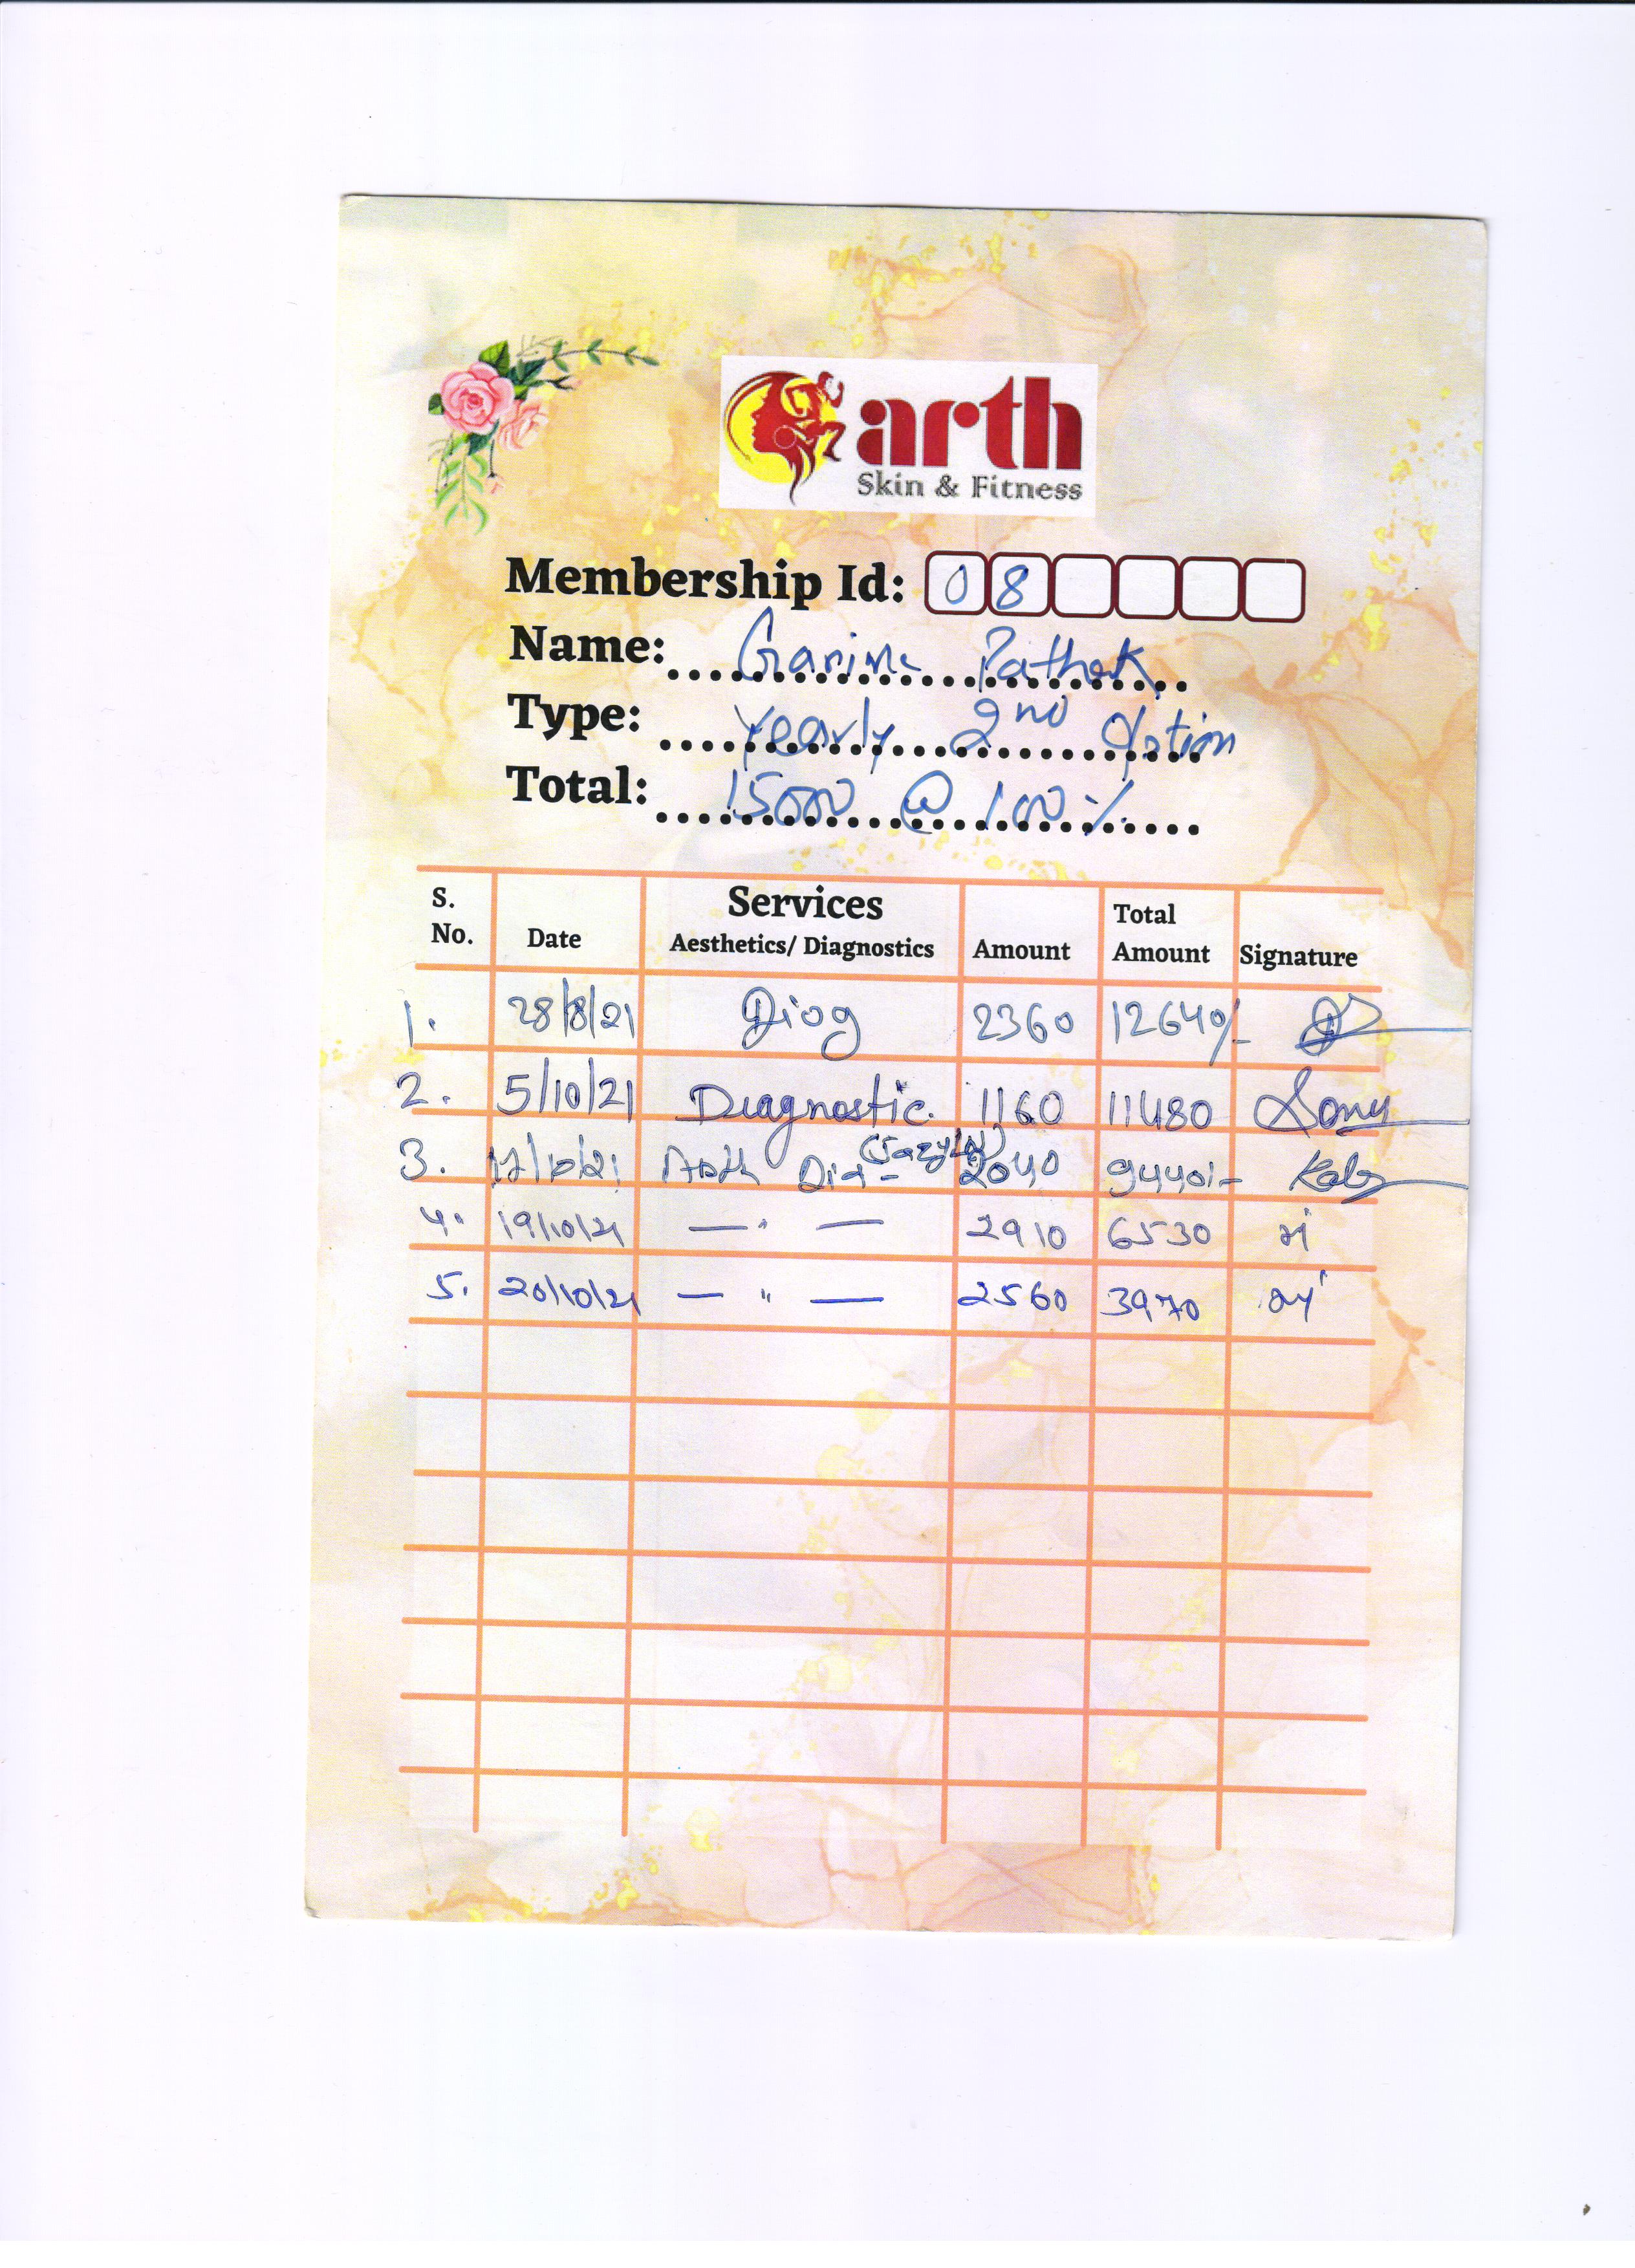 arth
Skin & Fitness
Membership Id: 08
Name: Garima Pathak
Type: Yearly 2nd Option
Total: 15000 @ 100 %
S. No. Date Services Aesthetics/ Diagnostics Amount Total Amount Signature
1. 28/8/21 Diag 2360 12640/-
2. 5/10/21 Diagnostic. 1160 11480 Sonu
3. 12/10/21 Dia- 2040 9440/-
4. 19/10/21 — " — 2910 6530
5. 20/10/21 — " — 2560 3970